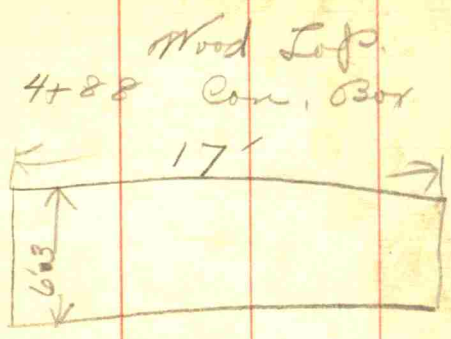 Wood Top.
4+88 Con. Box
17'
6'x3